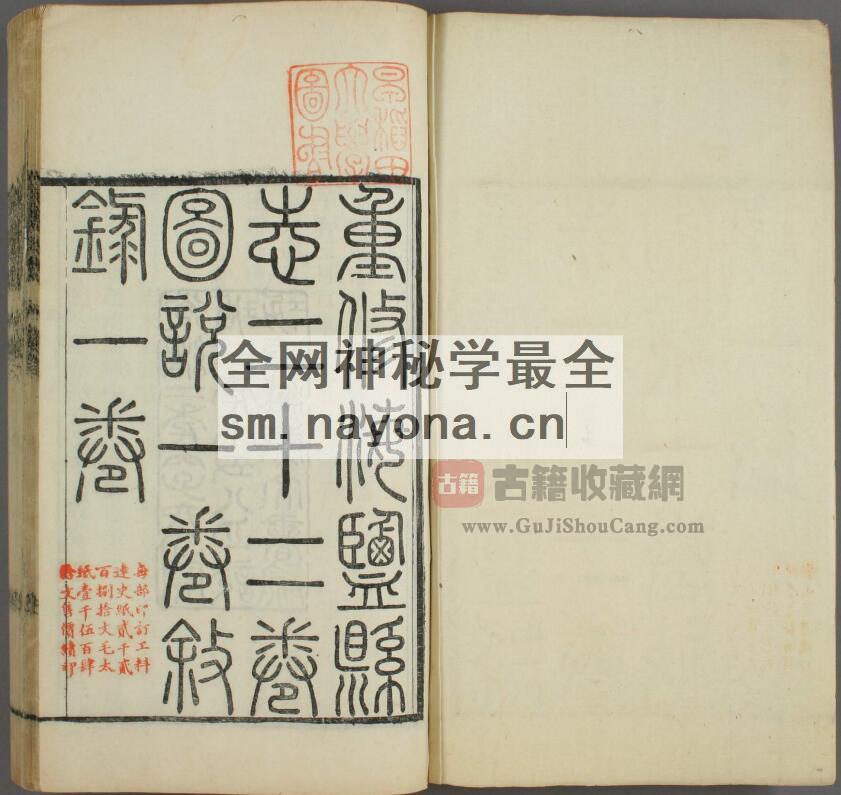 早稻田
大學
圖書
重修海鹽縣
志二十二卷
圖說一卷敘
錄一卷
每部印訂工料
連史紙貳千貳
百捌拾文毛太
紙壹千伍百肆
文售價續印
全网神秘学最全
sm.nayona.cn
古籍
古籍收藏網
www.GuJiShouCang.com